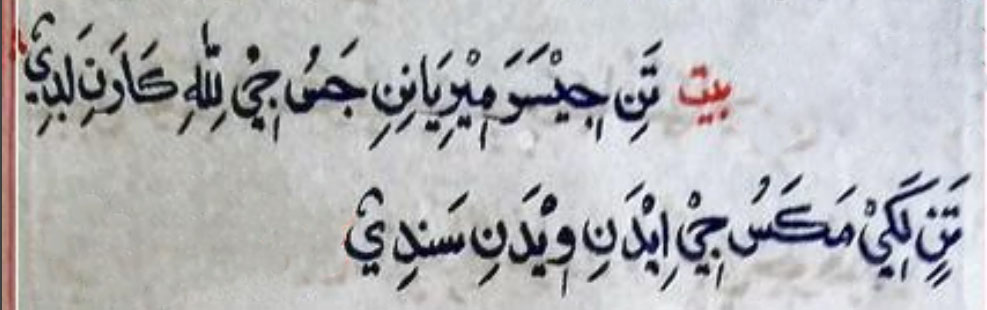 بيت تَنِ جِيْسَوَ مِيْرِيَانِنِ جَسُ جِيْ لِلّٰهِ كَارَنِ لَڊِيْ
تَنِ لَکِيْ مَکَسُ جِيْ اِيْدَنِ وِيْدَنِ سَندِيْ